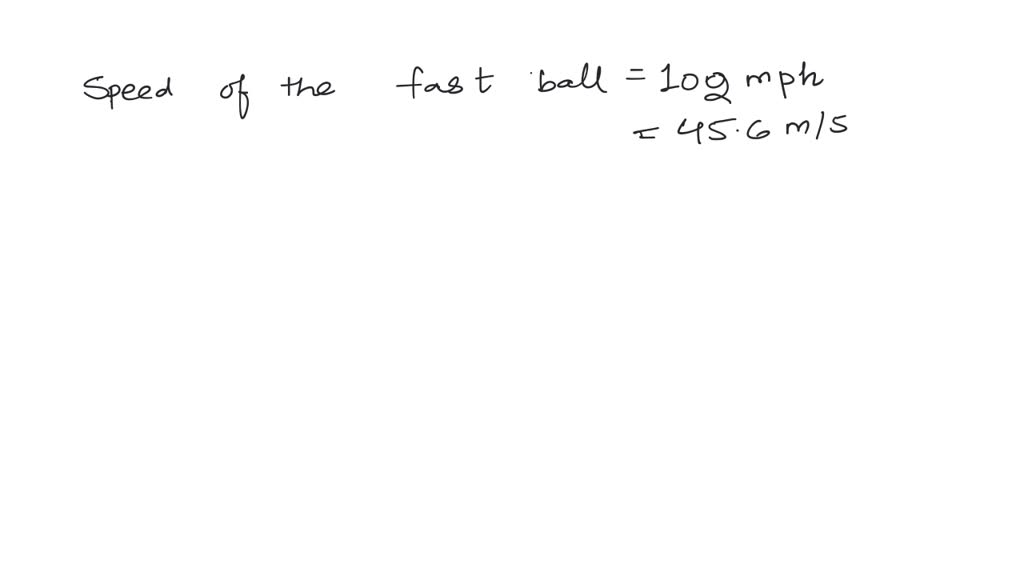 Speed of the fast ball = 102 mph
= 45.6 m/s